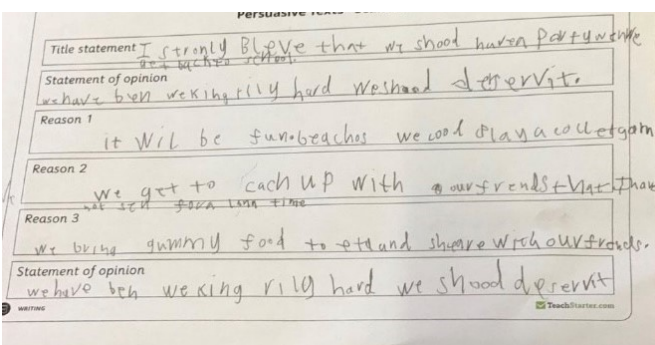 Persuasive Texts
Title statement I stronly Bleve that we shood haven party wenwe
get back to school.
Statement of opinion
we have ben weking rily hard We shood deservit.
Reason 1
it Wil be fun. beachos we cool play a coll et gam
Reason 2
We get to cach up with our frends that I hav
not sen for a long time
Reason 3
We bring gummy food to etd and sheare with our fronds.
Statement of opinion
we have beh weking rily hard we shood deservit
WRITING
TeachStarter.com